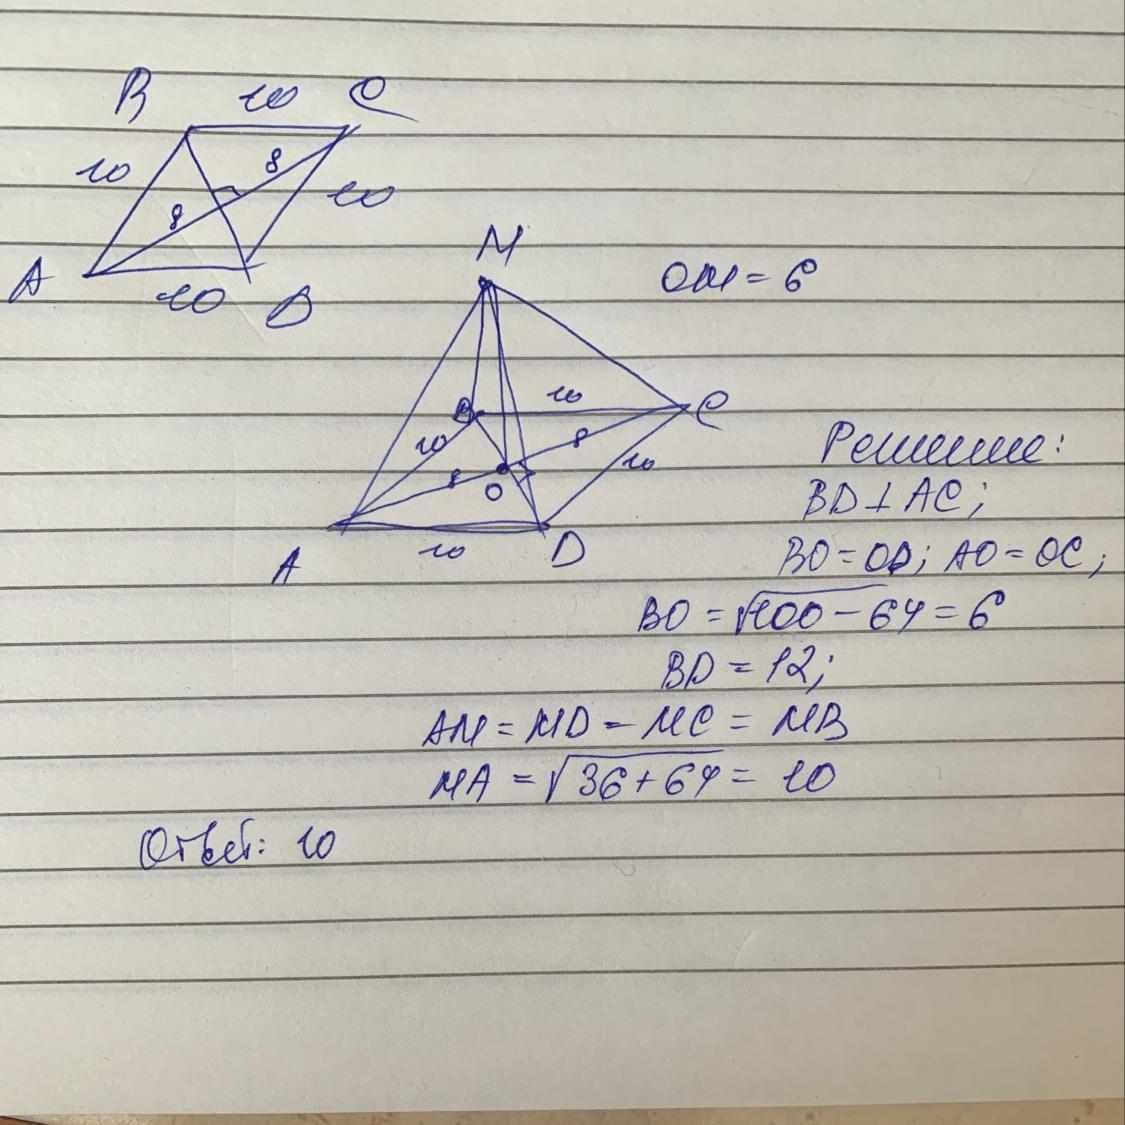 B 10 C
10 8 10
8
A 10 D
M
OM = 6
B 10 C
10 8 10
8
O
A 10 D
Решение:
BD ⊥ AC;
BO = OD; AO = OC;
BO = √100 - 64 = 6
BD = 12;
AM = MD = MC = MB
MA = √36 + 64 = 10
Ответ: 10